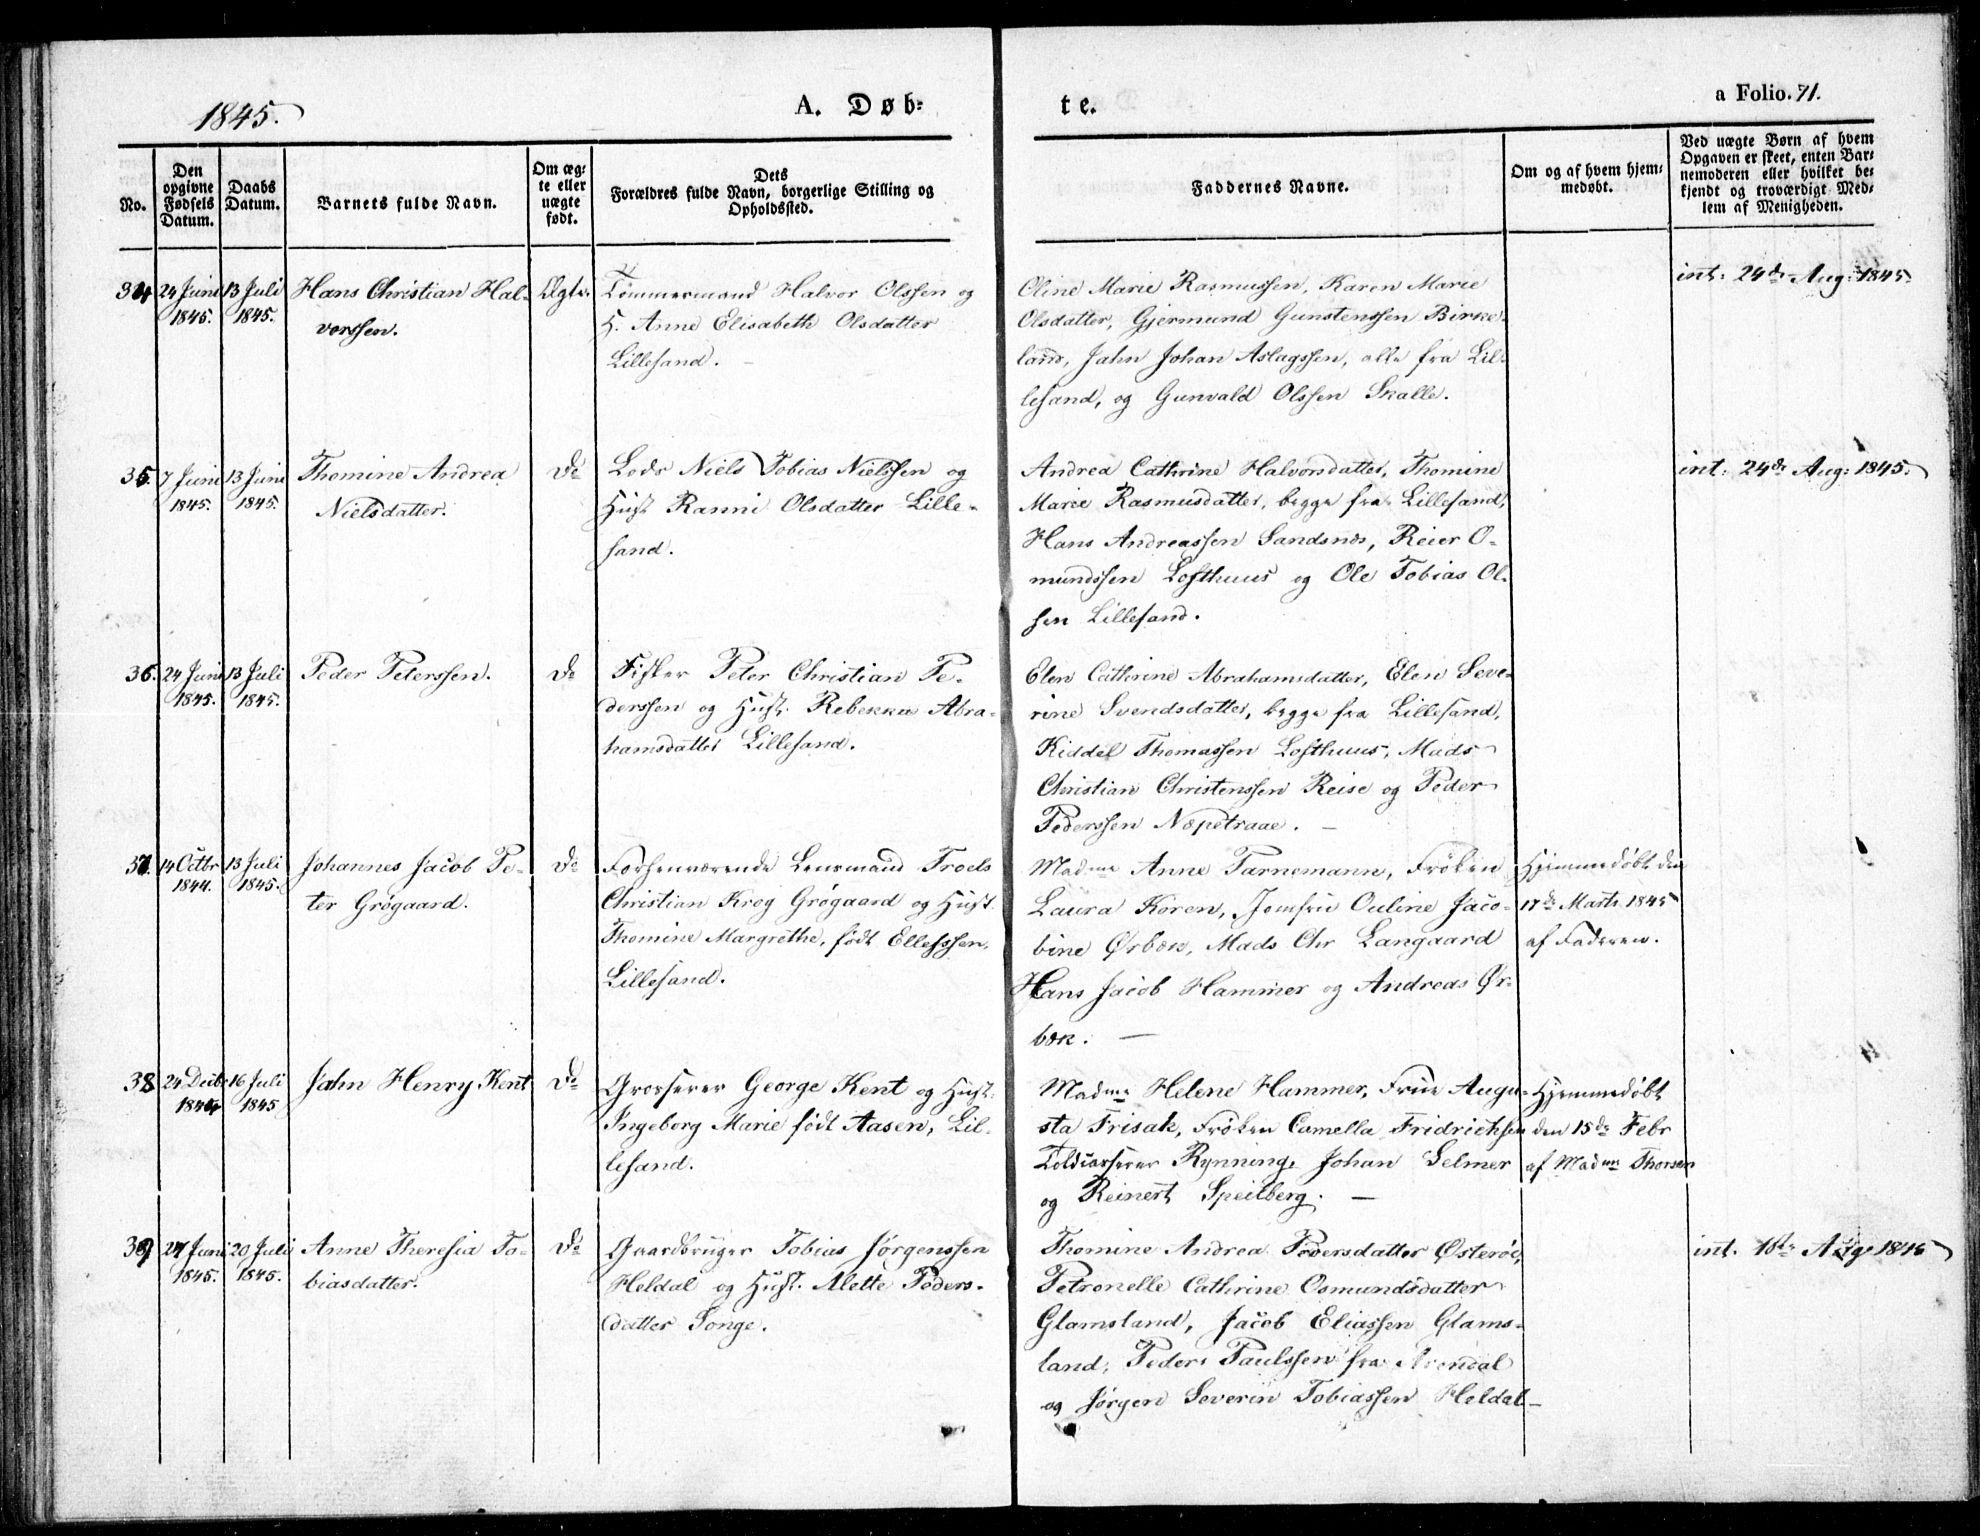 1845.
A. Døb-
te.
a Folio. 71.
No.
Den
opgivne
Fødsels
Datum.
Daabs
Datum.
Barnets fulde Navn.
Om æg-
te eller
uægte
født.
Dets
Forældres fulde Navn, borgerlige Stilling og
Opholdssted.
Faddernes Navne.
Om og af hvem hjem-
medøbt.
Ved uægte Børn af hvem
Opgaven er skeet, enten Bar-
nemoderen eller hvilket be-
kjendt og troværdigt Med-
lem af Menigheden.
34
24 Juni
1845.
13 Juli
1845.
Hans Christian Hal-
vorssen.
Ægte
Tømmermand Halvor Olssen og
H. Anne Elisabeth Olsdatter
Lillesand.
Oline Marie Rasmussen, Karen Marie
Olsdatter, Gjermund Gunstenssen Birke-
land, Jahn Johan Aslagssen, alle fra Lil-
lesand, og Gunvald Olssen Skalle.
int: 24de Aug: 1845.
35
7 Juni
1845.
13 Juni
1845.
Thomine Andrea
Nielsdatter.
do
Lods Niels Tobias Nielssen og
Hust Ranni Olsdatter Lille-
sand.
Andrea Cathrine Halvorsdatter, Thomine
Marie Rasmusdatter, begge fra Lillesand,
Hans Andreassen Sandsnes, Reier O-
mundssen Lofthuus og Ole Tobias Ol-
sen Lillesand.
int: 24de Aug: 1845.
36.
24 Juni
1845.
13 Juli
1845.
Peder Peterssen.
do
Fisker Peter Christian Pe-
derssen og Hust. Rebekka Abra-
hamsdatter Lillesand.
Elen Cathrine Abrahamsdatter, Elen Seve-
rine Svendsdatter, begge fra Lillesand,
Kiddel Thomassen Lofthuus, Mads
Christian Christenssen Reise og Peder
Pederssen Næpetraae.
37.
14 Octbr
1844.
13 Juli
1845.
Johannes Jacob Pe-
ter Grøgaard.
do
Forhenværende Lensmand Troels
Christian Krog Grøgaard og Hust
Thomine Margrethe, født Ellefssen,
Lillesand.
Madme Anne Tarnemann, Frøken
Laura Koren, Jomfru Ouline Jaco-
bine Ørbæn, Mads Chr Langaard
Hans Jacob Hammer og Andreas Ør-
bæk.
Hjemmedøbt den
17de Marts 1845
af Faderen.
38
24 Decbr
1844
16 Juli
1845
Jahn Henry Kent
do
Grosserer George Kent og Hust.
Ingeborg Marie født Aasen, Lil-
lesand.
Madme Helene Hammer, Frue Augu-
sta Frisak, Frøken Camella Fridrichsen
Toldcasserer Rynning, Johan Selmer
og Reinert Speilberg.
Hjemmedøbt
den 15de Febr
af Madme Thorsen
39
27 Juni
1845.
20 Juli
1845.
Anne Theresia To-
biasdatter.
do
Gaardbruger Tobias Jørgenssen
Heldal og Hust. Alette Peders-
datter Songe.
Thomine Andrea Pedersdatter Østerøe,
Petronelle Cathrine Osmundsdatter
Glamsland, Jacob Eliassen Glams-
land, Peder Paulssen fra Arendal
og Jørgen Severin Tobiassen Heldal
int. Aug 1845